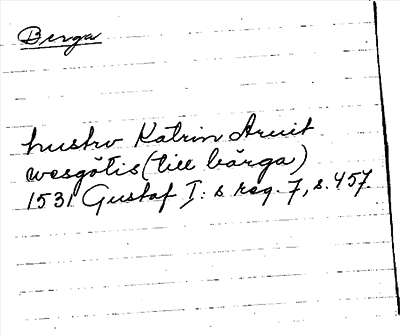 Berga
hustrv Katrin Aruit
wesgötis (till bärga)
1531 Gustaf I:s reg. 7, s. 457.